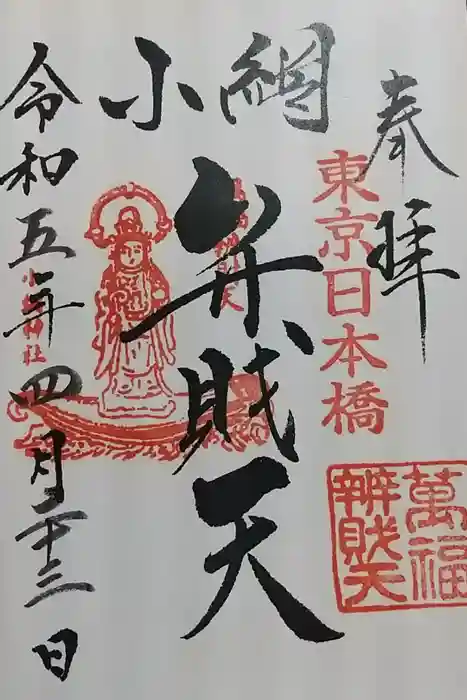 奉拝
東京日本橋
萬福
辨財天
小網
弁財天
小網神社
令和五年四月二十三日